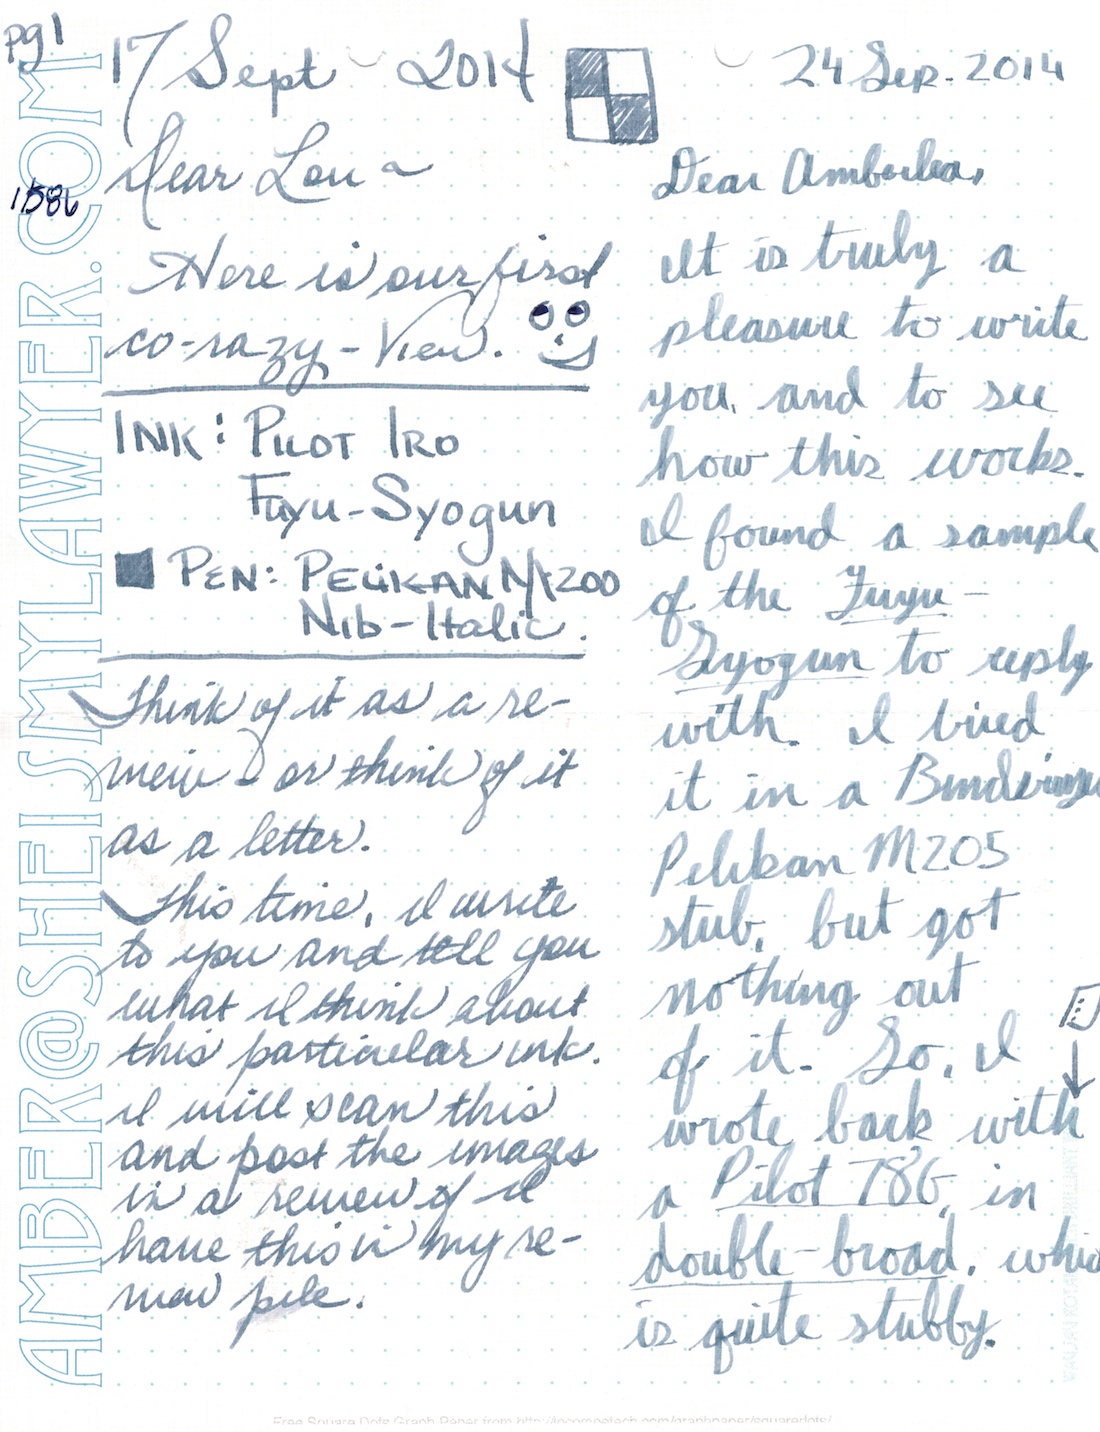 pg 1
AMBER@SHEISMYLAWYER.COM
1586
17 Sept 2014
Dear Lou ~
Here is our first
co-razy-View.
INK: PILOT IRO
Fuyu-Syogun
PEN: PELIKAN M200
Nib-Italic.
Think of it as a re-
view - or think of it
as a letter.
This time, I write
to you and tell you
what I think about
this particular ink.
I will scan this
and post the images
in a review of it
have this in my re-
view pile.
24 Sep. 2014
Dear Amberlea,
It is truly a
pleasure to write
you, and to see
how this works.
I found a sample
of the Fuyu-
Syogun to reply
with. I tried
it in a Binder
Pelikan M205
stub, but got
nothing out
of it. So, I
wrote back with
a Pilot 78G, in
double-broad, whic
is quite stubby.
Free Square Dots Graph Paper from http://incompetech.com/graphpaper/squaredots/